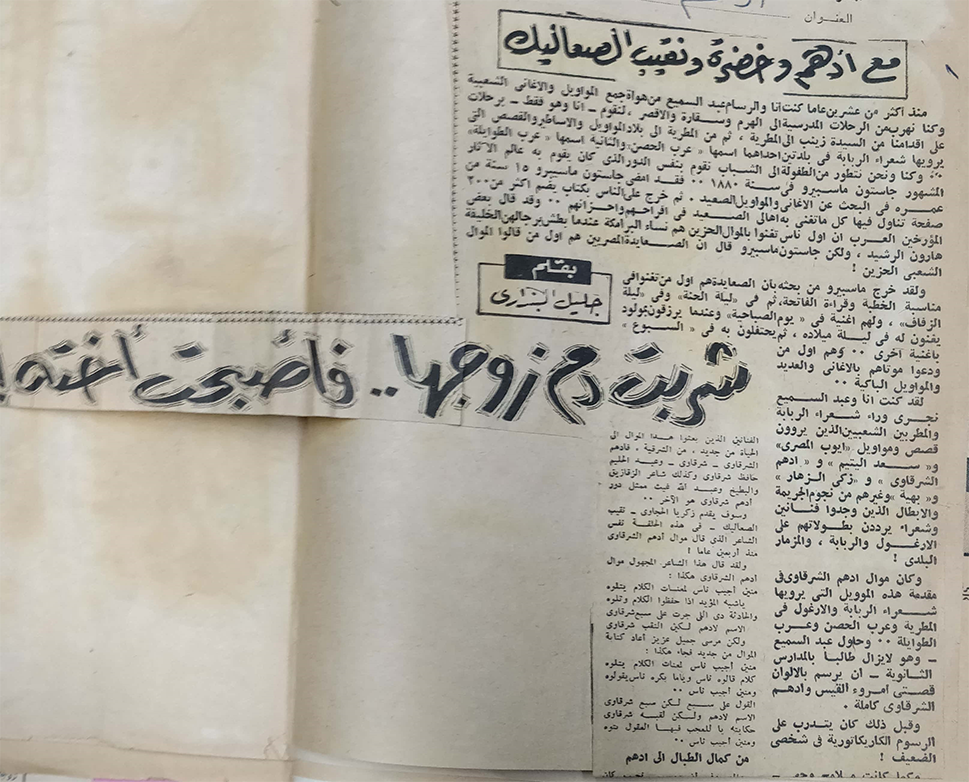 العنوان
مع أدهم وخضرة ونقيب الصعاليك
منذ أكثر من عشرين عاما كنت انا والرسام عبد السميع من هواة جمع المواويل والاغانى الشعبية
وكنا نهرب من الرحلات المدرسية الى الهرم وسقارة والاقصر ، لنقوم ـ انا وهو فقط ـ برحلات
على اقدامنا من السيدة زينب الى المطرية ، ثم من المطرية الى بلاد المواويل والاساطير والقصص التى
يرويها شعراء الربابة فى بلدتين احداهما اسمها « عرب الحصن» والثانية اسمها « عرب الطوايلة»
٠٠ وكنا ونحن نتطور من الطفولة الى الشباب نقوم بنفس الدور الذى كان يقوم به عالم الآثار
المشهور جاستون ماسبيرو فى سنة ١٨٨٠ ٠٠ فقد امضى جاستون ماسبيرو ١٥ سنة من
عمره فى البحث عن الاغانى والمواويل الصعيد ، ثم خرج على الناس بكتاب يضم اكثر من ٢٠٠
صفحة تناول فيها كل ما تغنى به اهالى الصعيد فى افراحهم واحزانهم ٠٠ وقد قال بعض
المؤرخين العرب ان اول ناس تغنوا بالموال الحزين هم نساء البرامكة عندما بطش برجالهن الخليفة
هارون الرشيد ، ولكن جاستون ماسبيرو قال ان الصعايدة المصريين هم اول من قالوا الموال
الشعبى الحزين !
ولقد خرج ماسبيرو من بحثه بان الصعايدة هم اول من تغنوا فى
مناسبة الخطبة وقراءة الفاتحة، ثم فى «ليلة الحنة» وفى «ليلة
الزفاف» ، ولهم اغنية فى « يوم الصباحية» وعندما يرزقون بمولود
يغنون له فى ليلة ميلاده ، ثم يحتفلون به فى « السبوع »
باغنية اخرى ٠٠ وهم اول من
ودعوا موتاهم بالاغانى والعديد
والمواويل الباكية ٠٠
بقلم
جليل البندارى
شربت دم زوجها .. فأصبحت أخته !
لقد كنت انا وعبد السميع
نجرى وراء شعراء الربابة
والمطربين الشعبيين الذين يروون
قصص ومواويل «ايوب المصرى»
و« سعد اليتيم » و« ادهم
الشرقاوى » و« زكى الزهار »
و« بهية »وغيرهم من نجوم الجريمة
والابطال الذين وجدوا فنانين
وشعراء يرددن بطولاتهم على
الارغول والربابة ، والمزمار
البلدى !
وكان موال ادهم الشرقاوى فى
مقدمة هذه الموويل التى يرويها
شعراء الربابة والارغول فى
المطرية وعرب الحصن وعرب
الطوايلة ٠٠ وحاول عبد السميع
ـ وهو لايزال طالبا بالمدارس
الثانوية ـ ان يرسم بالالوان
قصتى امروء القيس وادهم
الشرقاوى كاملة ٠
وقبل ذلك كان يتدرب على
الرسوم الكاريكاتورية فى شخصى
الضعيف !
الفنانين الذين بعثوا هذا الموال الى
الحياة من جديد ، من الشرقية ، فادهم
الشرقاوى ـ شرقاوى ـ وعبد الحليم
حافظ شرقاوى وكذلك شاعر الزقازيق
والبطيخ وعبد الله غيث ممثل دور
أدهم شرقاوى هو الآخر ٠٠
وسوف يقدم زكريا الحجاوى ـ نقيب
الصعاليك ـ فى هذه الحلقة نفس
الشاعر الذى قال موال أدهم الشرقاوى
منذ أربعين عاما !
ولقد قال هذا الشاعر المجهول موال
ادهم الشرقاوى هكذا :
منين أجيب ناس لمعنات الكلام يتلوه
ياشبه المؤيد اذا حفظوا الكلام وتلوه
والحادثة دى اللى جرت على سبع شرقاوى
الاسم لادهم لكن النقب شرقاوى
ولكن مرسى جميل عزيز أعاد كتابة
الموال من جديد فجاء هكذا :
منين أجيب ناس لمعنات الكلام يتلوه
كلام قالوه ناس وياما بكره ناس يقولوه
ومنين أجيب ناس ٠٠
القول على سبع لكن سبع شرقاوى
الاسم لادهم ولكن لقبه شرقاوى
حكايته يا للعجب فيها العقول تتوه
ومنين أجيب ناس ٠٠
من كمال الطبال الى ادهم